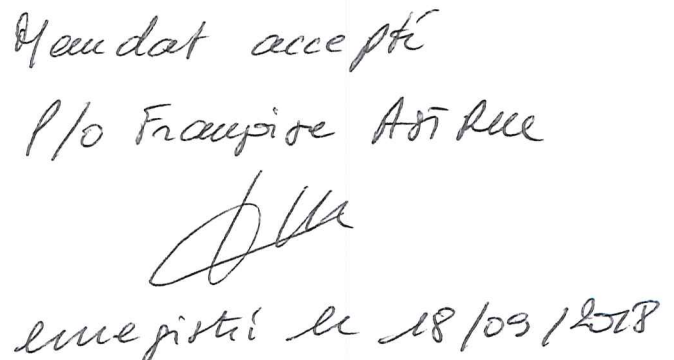 Mandat accepté
P/o Françoise ASTRUC
enregistré le 18/09/2018